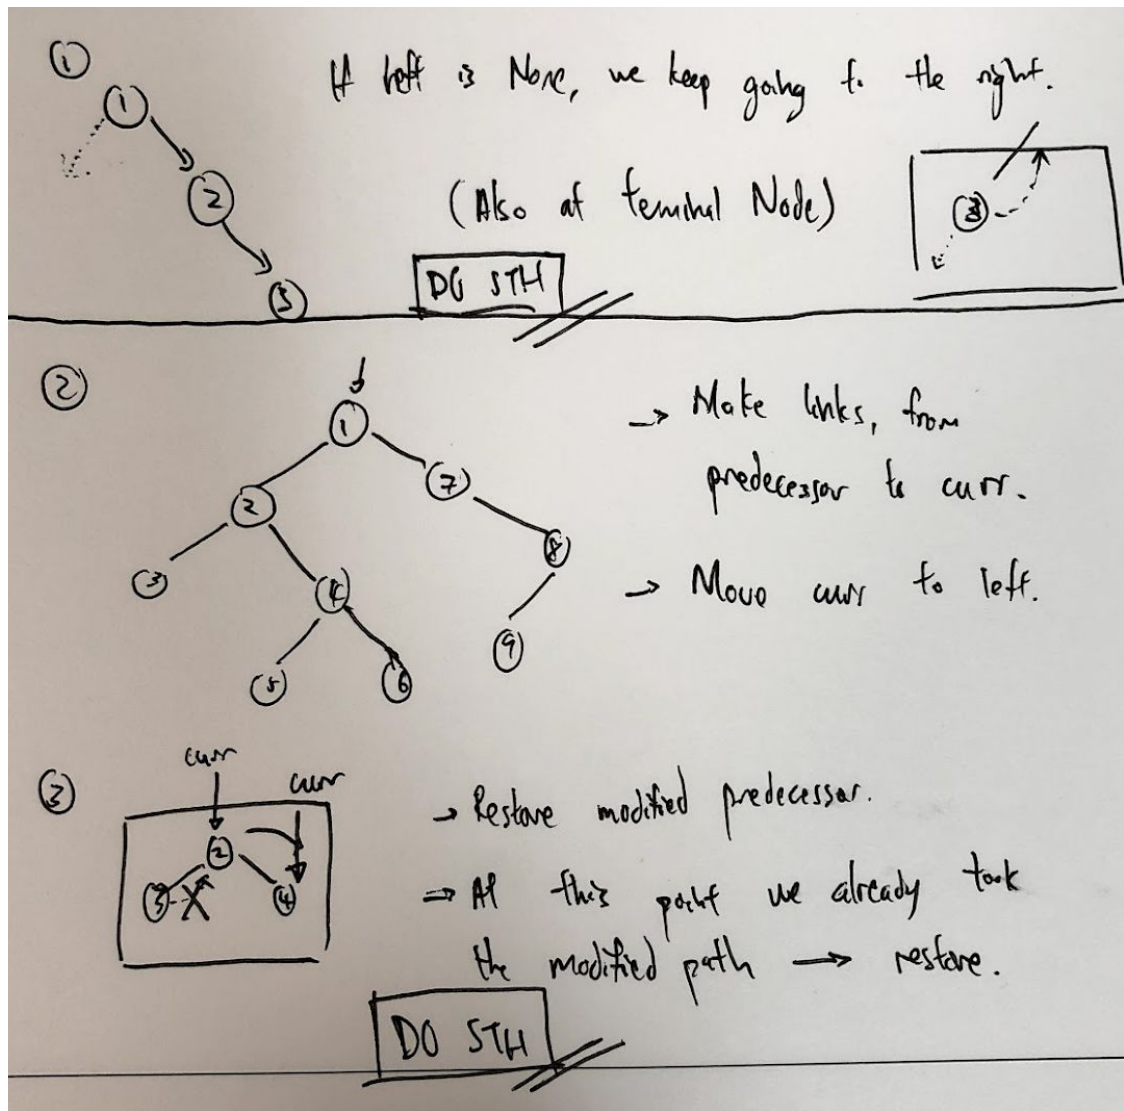 ①
If left is None, we keep going to the right.
1
2
(Also at terminal Node)
3
3
DO STH
②
1
→ Make links, from
predecessor to curr.
7
2
8
3
4
→ Move curr to left.
9
5
6
③
curr
curr
→ Restore modified predecessor.
2
3
4
⇒ At this point we already took
the modified path → restore.
DO STH